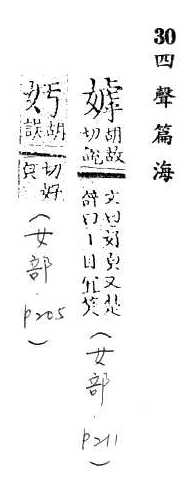 30 四聲篇海
嫭 胡故切說文曰好皃又楚辭曰丨目宜笑（女部．P211）
胡誤切好皃（女部．P205）